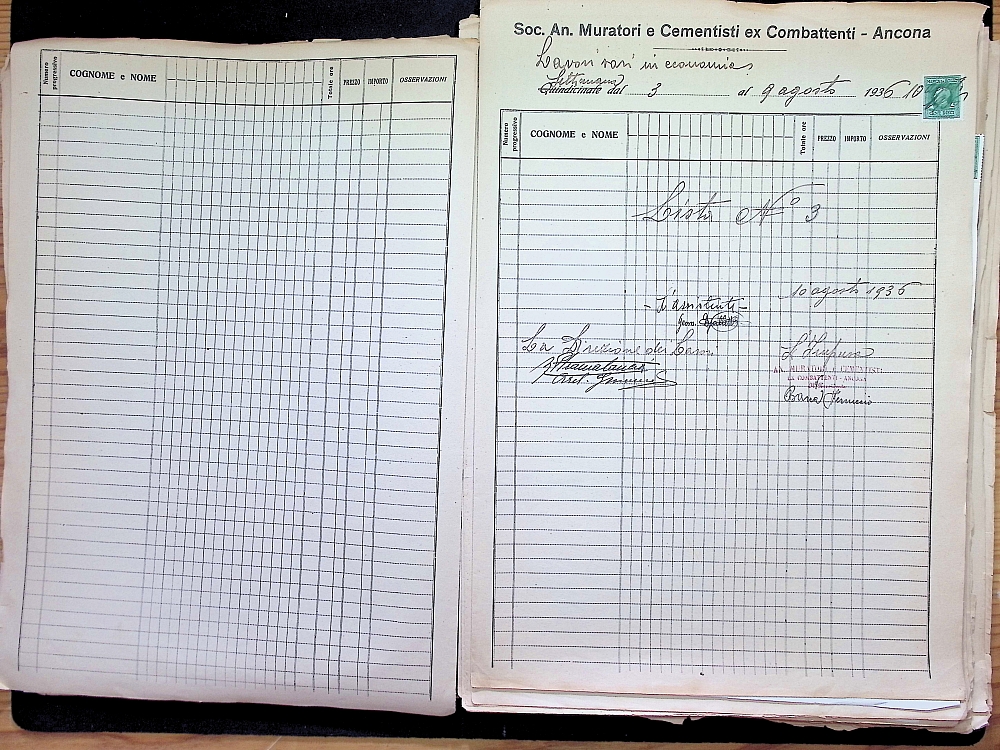 Numero progressivo COGNOME e NOME Totale ore PREZZO IMPORTO OSSERVAZIONI
Soc. An. Muratori e Cementisti ex Combattenti - Ancona
Lavori vari in economia
Settimana
Quindicinale dal 3 al 9 agosto 1936 10
Numero progressivo COGNOME e NOME Totale ore PREZZO IMPORTO OSSERVAZIONI
Lista N° 3
10 agosto 1936
L'assistente
Geom.
La Direzione dei Lavori
L'Impresa
AN. MURATORI e CEMENTISTI
EX COMBATTENTI - ANCONA